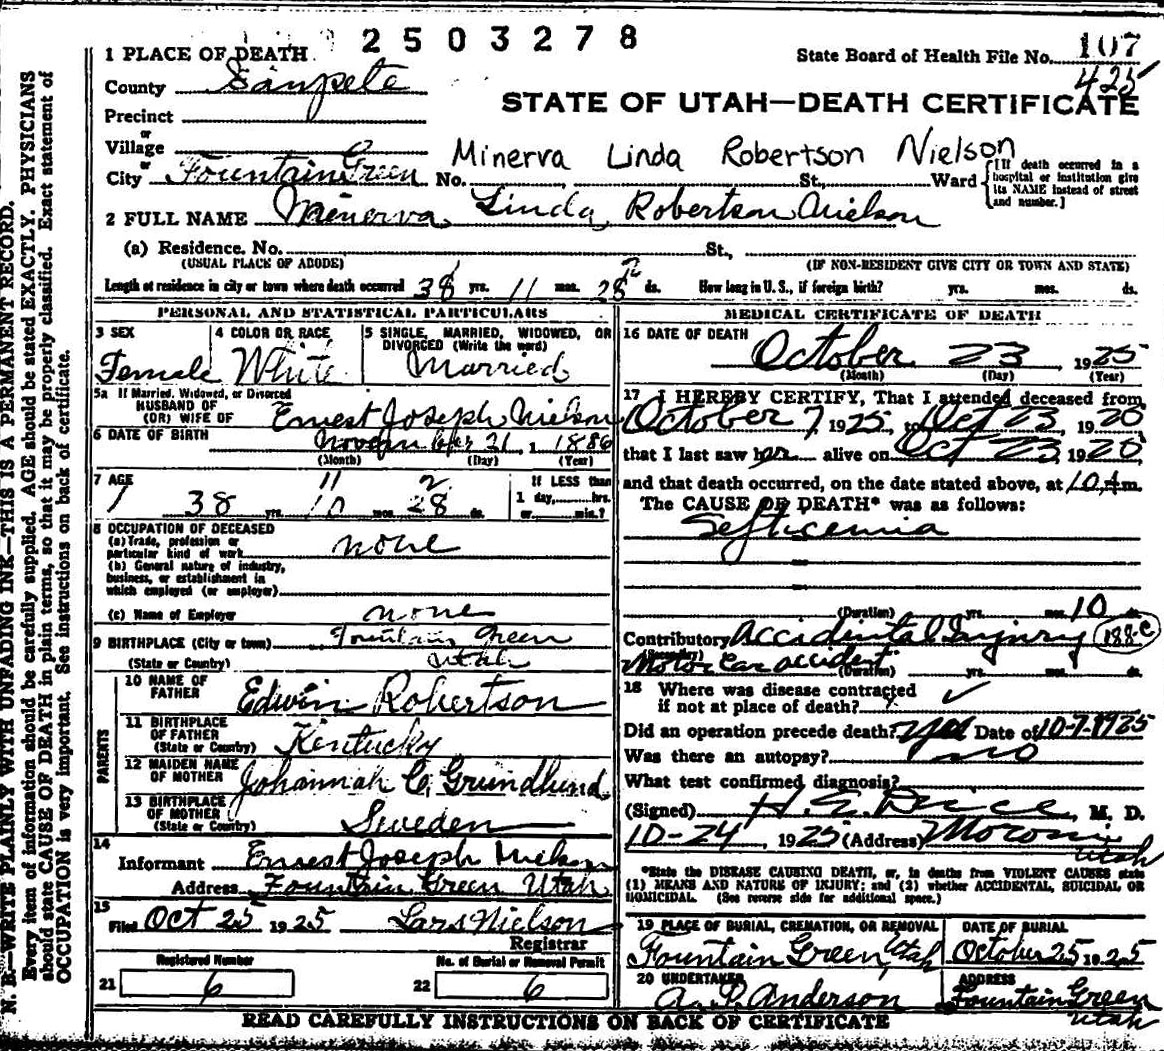 2503278
1 PLACE OF DEATH
State Board of Health File No. 107
425
County Sanpete
STATE OF UTAH—DEATH CERTIFICATE
Precinct
or
Village
Minerva Linda Robertson Nielson
or
City Fountain Green No. St., Ward
[If death occurred in a hospital or institution give its NAME instead of street and number.]
2 FULL NAME Minerva Linda Robertson Nielson
(a) Residence. No. St.,
(USUAL PLACE OF ABODE) (IF NON-RESIDENT GIVE CITY OR TOWN AND STATE)
Length of residence in city or town where death occurred 38 yrs. 11 mos. 28 2 ds. How long in U. S., if foreign birth? yrs. mos. ds.
PERSONAL AND STATISTICAL PARTICULARS
3 SEX
Female
4 COLOR OR RACE
White
5 SINGLE, MARRIED, WIDOWED, OR
DIVORCED (Write the word)
Married
5a If Married, Widowed, or Divorced
HUSBAND OF
(OR) WIFE OF Ernest Joseph Nielson
6 DATE OF BIRTH November 21, 1886
(Month) (Day) (Year)
7 AGE 11 2
38 yrs. 10 mos. 28 ds.
If LESS than
1 day, hrs.
or min.?
8 OCCUPATION OF DECEASED
(a) Trade, profession or
particular kind of work none
(b) General nature of industry,
business, or establishment in
which employed (or employer)
(c) Name of Employer none
9 BIRTHPLACE (City or town) Fountain Green
(State or Country) Utah
PARENTS
10 NAME OF
FATHER Edwin Robertson
11 BIRTHPLACE
OF FATHER
(State or Country) Kentucky
12 MAIDEN NAME
OF MOTHER Johannah C. Grundlund
13 BIRTHPLACE
OF MOTHER
(State or Country) Sweden
14
Informant Ernest Joseph Nielson
Address Fountain Green Utah
15
Filed Oct 25 1925 Lars Nielson
Registrar
Registered Number
21 6
No. of Burial or Removal Permit
22 6
MEDICAL CERTIFICATE OF DEATH
16 DATE OF DEATH
October 23 1925
(Month) (Day) (Year)
17 I HEREBY CERTIFY, That I attended deceased from
October 7, 1925, to Oct 23, 1925
that I last saw her alive on Oct 23, 1925,
and that death occurred, on the date stated above, at 10 A m.
The CAUSE OF DEATH* was as follows:
Septicemia
(Duration) yrs. mos. 10 ds.
Contributory Accidental Injury 188-c
(Secondary)
Motor Car accident (Duration) yrs. mos. ds.
18 Where was disease contracted
if not at place of death?
Did an operation precede death? yes Date of 10-7-1925
Was there an autopsy? no
What test confirmed diagnosis?
(Signed) M. D.
10-24 1925 (Address) Moroni
Utah
*State the DISEASE CAUSING DEATH, or, in deaths from VIOLENT CAUSES state
(1) MEANS AND NATURE OF INJURY; and (2) whether ACCIDENTAL, SUICIDAL OR
HOMICIDAL. (See reverse side for additional space.)
19 PLACE OF BURIAL, CREMATION, OR REMOVAL
Fountain Green, Utah
DATE OF BURIAL
October 25 1925
20 UNDERTAKER
A. P. Anderson
ADDRESS
Fountain Green
Utah
READ CAREFULLY INSTRUCTIONS ON BACK OF CERTIFICATE
N. B.—WRITE PLAINLY WITH UNFADING INK—THIS IS A PERMANENT RECORD.
Every item of information should be carefully supplied. AGE should be stated EXACTLY. PHYSICIANS
should state CAUSE OF DEATH in plain terms, so that it may be properly classified. Exact statement of
OCCUPATION is very important. See instructions on back of certificate.